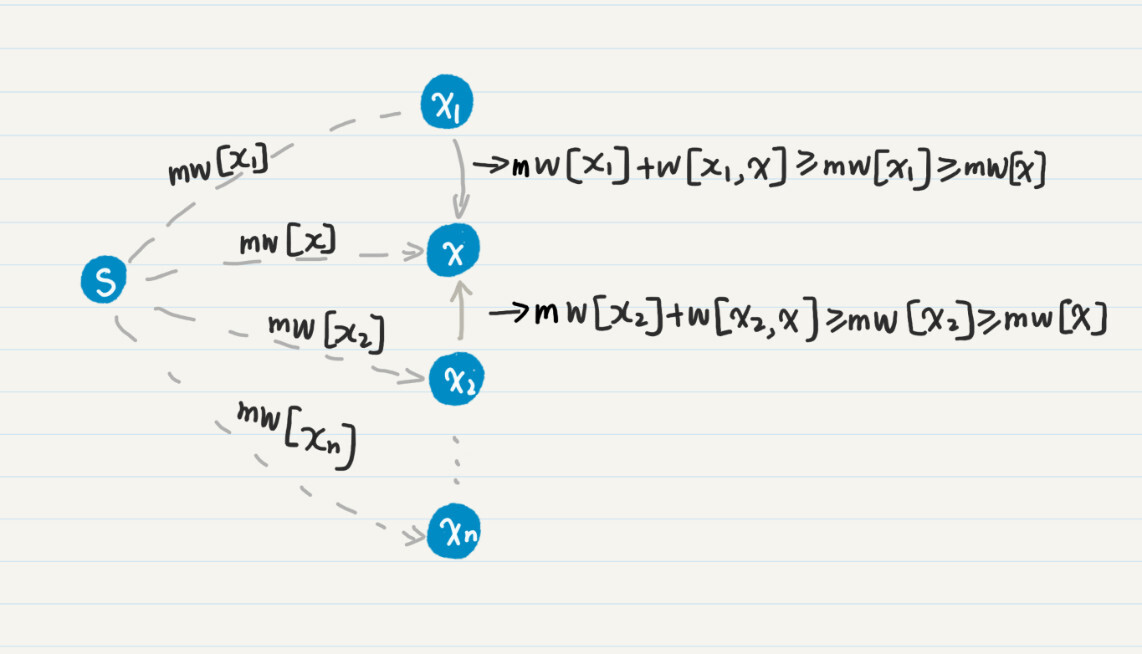 x₁
mw[x₁]
→mw[x₁]+w[x₁,x]≥mw[x₁]≥mw[x]
mw[x]
x
S
→mw[x₂]+w[x₂,x]≥mw[x₂]≥mw[x]
mw[x₂]
x₂
mw[xₙ]
xₙ